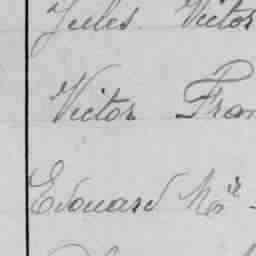 Jules Victor
Victor Fran
Edouard